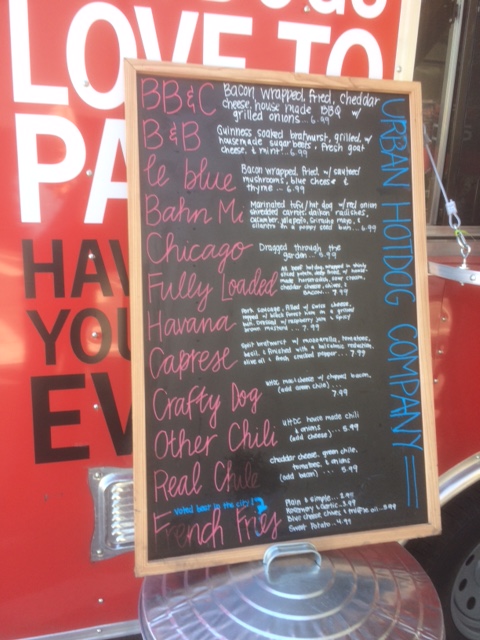 DOGS
LOVE TO
PA
HAV
YOU
EV
URBAN HOTDOG COMPANY
BB&C
Bacon wrapped, fried, cheddar
cheese, house made BBQ w/
grilled onions... 6.99
B&B
Guinness soaked bratwurst, grilled, w/
housemade sugar beets, fresh goat
cheese, & mint... 6.99
le blue
Bacon wrapped, fried w/ sauteed
mushrooms, blue cheese &
thyme... 6.99
Bahn Mi
Marinated tofu/hot dog w/ red onion
shredded carrot, daikon radishes,
cucumber, jalapeño, sriracha mayo, &
cilantro on a poppy seed bun... 6.99
Chicago
Dragged through the
garden... 5.99
Fully Loaded
All beef hotdog, wrapped in thinly
sliced potato, deep fried, w/ house-
made horseradish, sour cream,
cheddar cheese, chives, &
BACON... 7.99
Havana
Pork sausage, filled w/ swiss cheese,
topped w/ black forest ham on a grilled
bun, dressed w/ raspberry jam & spicy
brown mustard... 7.99
Caprese
Split bratwurst w/ mozzarella, tomatoes,
basil & finished with a balsamic reduction,
olive oil & fresh cracked pepper... 7.99
Crafty Dog
UHDC mac & cheese w/ chopped bacon,
(add green chile)...
7.99
Other Chili
UHDC house made chili
& onions
(add cheese)... 5.99
Real Chile
cheddar cheese, green chile,
tomatoes, & onions
(add bacon)... 5.99
Voted best in the city!
French Fries
Plain & simple... 2.95
Rosemary & Garlic... 3.99
Blue cheese, chives & truffle oil... 5.99
Sweet Potato... 4.99